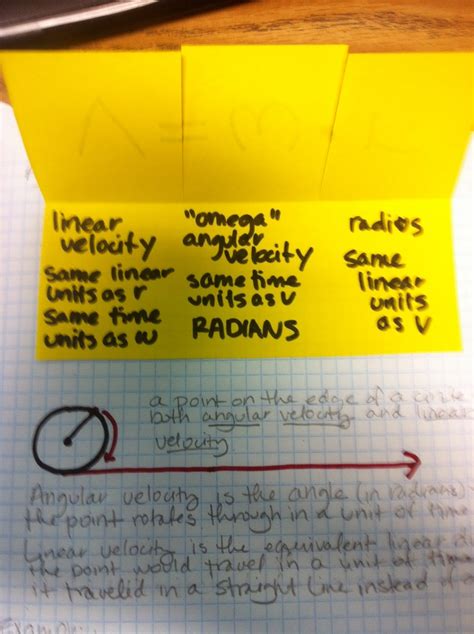 V = ω · r
linear
velocity
same linear
units as r
same time
units as ω
"omega"
angular
velocity
same time
units as v
RADIANS
radius
same
linear
units
as v
a point on the edge of a circle
both angular velocity and linear
velocity
Angular velocity is the angle (in radians)
the point rotates through in a unit of time
Linear velocity is the equivalent linear
the point would travel in a unit of time
it traveled in a straight line instead of